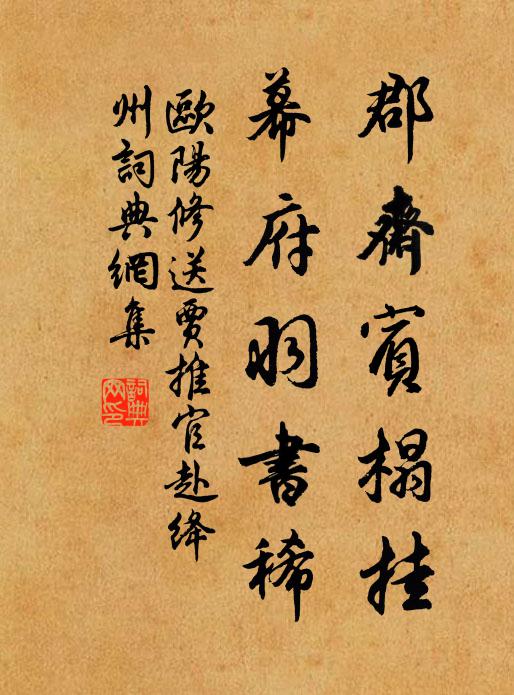 郡齋賓榻挂
幕府羽書稀
歐陽修送賈推官赴绛
州詞典網集
詞典網印